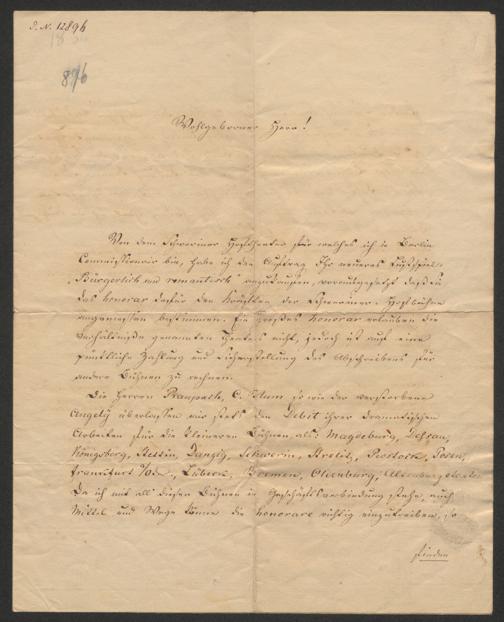 J. N. 12896
876
Wohlgeborner Herr!
Von dem Schweriner Hoftheater für welches ich in Berlin
Commissionair bin, habe ich den Auftrag Ihr neueres Lustspiel:
„Bürgerlich und romantisch" anzukaufen, vorausgesetzt daß Sie
das honorar dafür den Kräften der Schweriner Hofbühne
angemessen bestimmen. Ein großes honorar erlauben die
Verhältnisse genannten Theaters nicht, jedoch ist auf eine
pünktliche Zahlung und Sicherstellung des Abschreibens für
andere Bühnen zu rechnen.
Die Herren Raupach, C. Blum so wie der verstorbene
Angely überlassen mir stets den Debit ihrer dramatischen
Arbeiten für die kleineren Bühnen, als: Magdeburg, Dessau,
Königsberg, Stettin, Danzig, Schwerin, Strelitz, Rostock, Posen,
Frankfurt a/Od., Lübeck, Bremen, Oldenburg, Altenburg
Da ich mit all' diesen Bühnen in Geschäftsverbindung stehe, auch
Mittel und Wege kenne die honorare richtig einzutreiben, so
finden